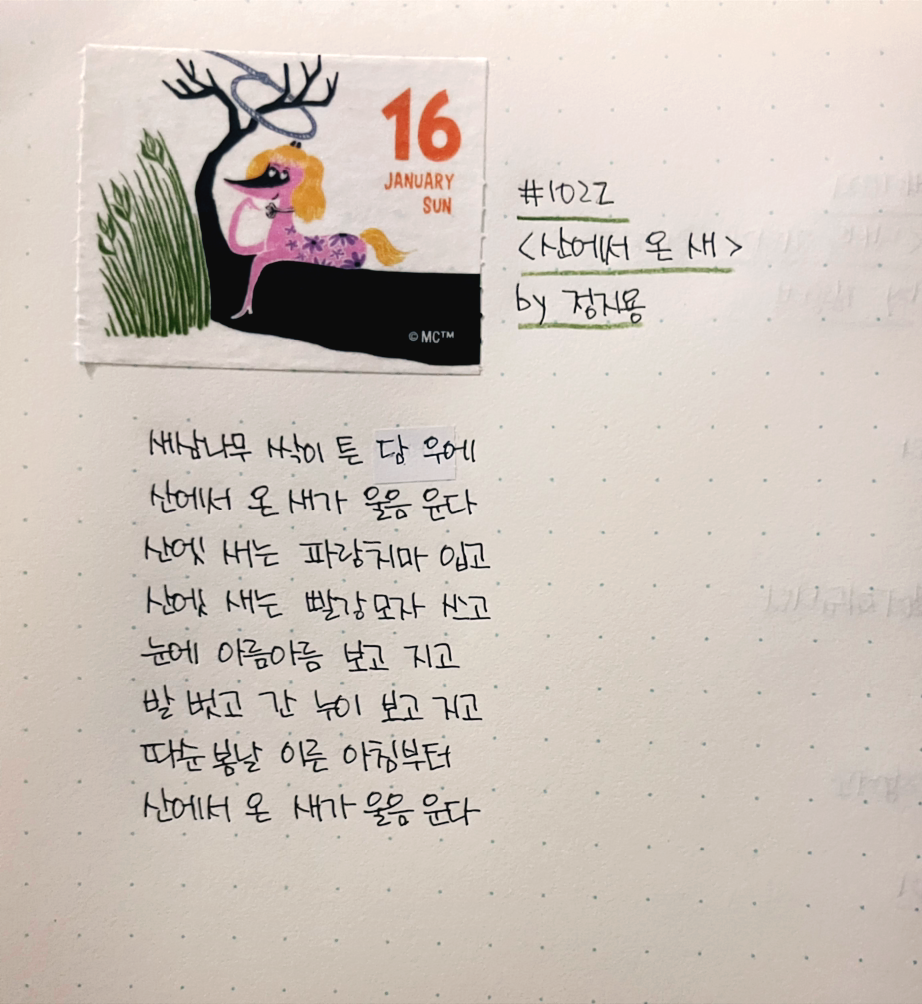 16
JANUARY
SUN
© MC™
#1022
<산에서 온 새>
by 정지용
새삼나무 싹이 튼 담 우에
산에서 온 새가 울음 운다
산엣 새는 파랑치마 입고
산엣 새는 빨강모자 쓰고
눈에 아름아름 보고 지고
발 벗고 간 누이 보고 지고
따순 봄날 이른 아침부터
산에서 온 새가 울음 운다